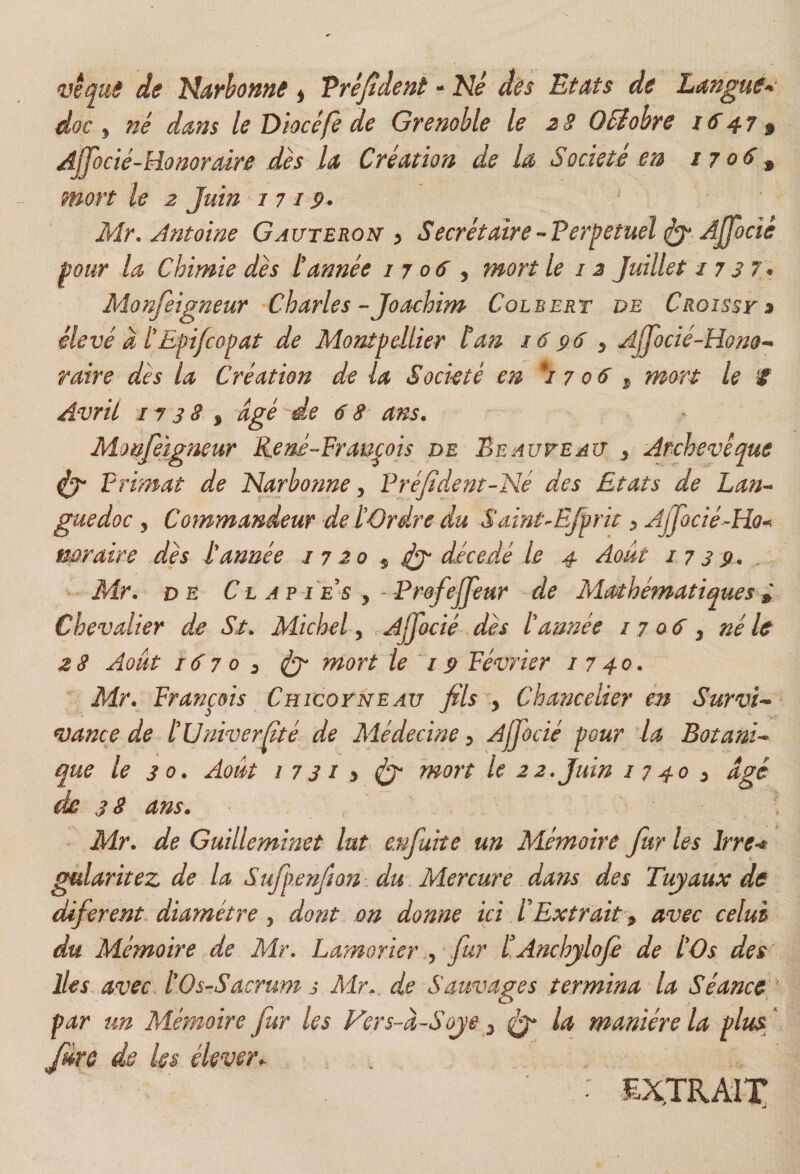 vêque de Narbonne, Préſident-Né des Etats de Langue-
doc, né dans le Diocéſe de Grenoble le 28 Octobre 1647,
Aſſocié-Honoraire dès la Création de la Societé en 1706,
mort le 2 Juin 1719.
Mr. Antoine GAUTERON, Secrétaire-Perpetuel & Aſſocié
pour la Chimie dès l'année 1706, mort le 12 Juillet 1737.
Monſeigneur Charles-Joachim COLBERT DE CROISSY,
élevé à l'Epiſcopat de Montpellier l'an 1696, Aſſocié-Hono-
raire dès la Création de la Societé en 1706, mort le
Avril 1738, âgé de 68 ans.
Monſeigneur René-François DE BEAUVEAU, Archevêque
& Primat de Narbonne, Préſident-Né des Etats de Lan-
guedoc, Commandeur de l'Ordre du Saint-Eſprit, Aſſocié-Ho-
noraire dès l'année 1720, & décedé le 4 Août 1739.
Mr. DE CLAPIE'S, Profeſſeur de Mathématiques;
Chevalier de St. Michel, Aſſocié dès l'année 1706, né le
28 Août 1670, & mort le 19 Février 1740.
Mr. François CHICOYNEAU fils, Chancelier en Survi-
vance de l'Univerſité de Médecine, Aſſocié pour la Botani-
que le 30. Août 1731, & mort le 22. Juin 1740, âgé
de 38 ans.
Mr. de Guilleminet lut enſuite un Mémoire ſur les Irre-
gularitez de la Suſpenſion du Mercure dans des Tuyaux de
diferent diamétre, dont on donne ici l'Extrait, avec celui
du Mémoire de Mr. Lamorier, ſur l'Anchyloſe de l'Os des
Iles avec l'Os-Sacrum; Mr. de Sauvages termina la Séance
par un Mémoire ſur les Vers-à-Soye, & la maniére la plus
ſûre de les élever.
EXTRAIT